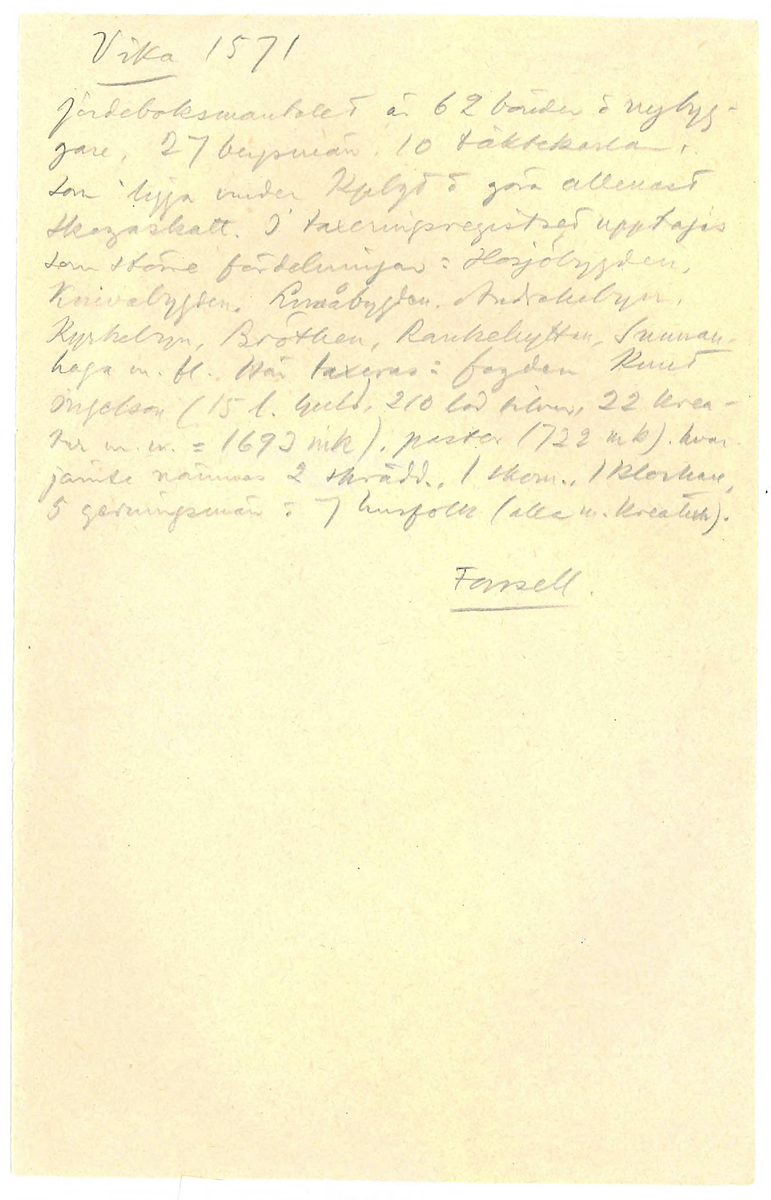 Vika 1571
jordeboksmantalet är 62 bönder o nybyg-
gare, 27 bergsmän. 10 täktekarlar,
som ligga under Kpbgt o göra allenast
skogaskatt. I taxeringsregistret upptagis
som större fördelningar: Hosjöbygden,
Knivabygden, Lmåbygden. Andrakebyn,
Kyrkebyn, Bröthen, Rankehyttan, Sunnan-
haga m. fl. Här taxeras: fogden Knut
Ingelson (15 l. guld, 210 lod silver, 22 krea-
tur m. m. = 1693 mk), pastor (722 mk). hvar
jämte nämnas 2 skrädd., 1 skom., 1 klockare,
5 gerningsmän o 7 husfolk (alla m. kreatur).
Forssell.